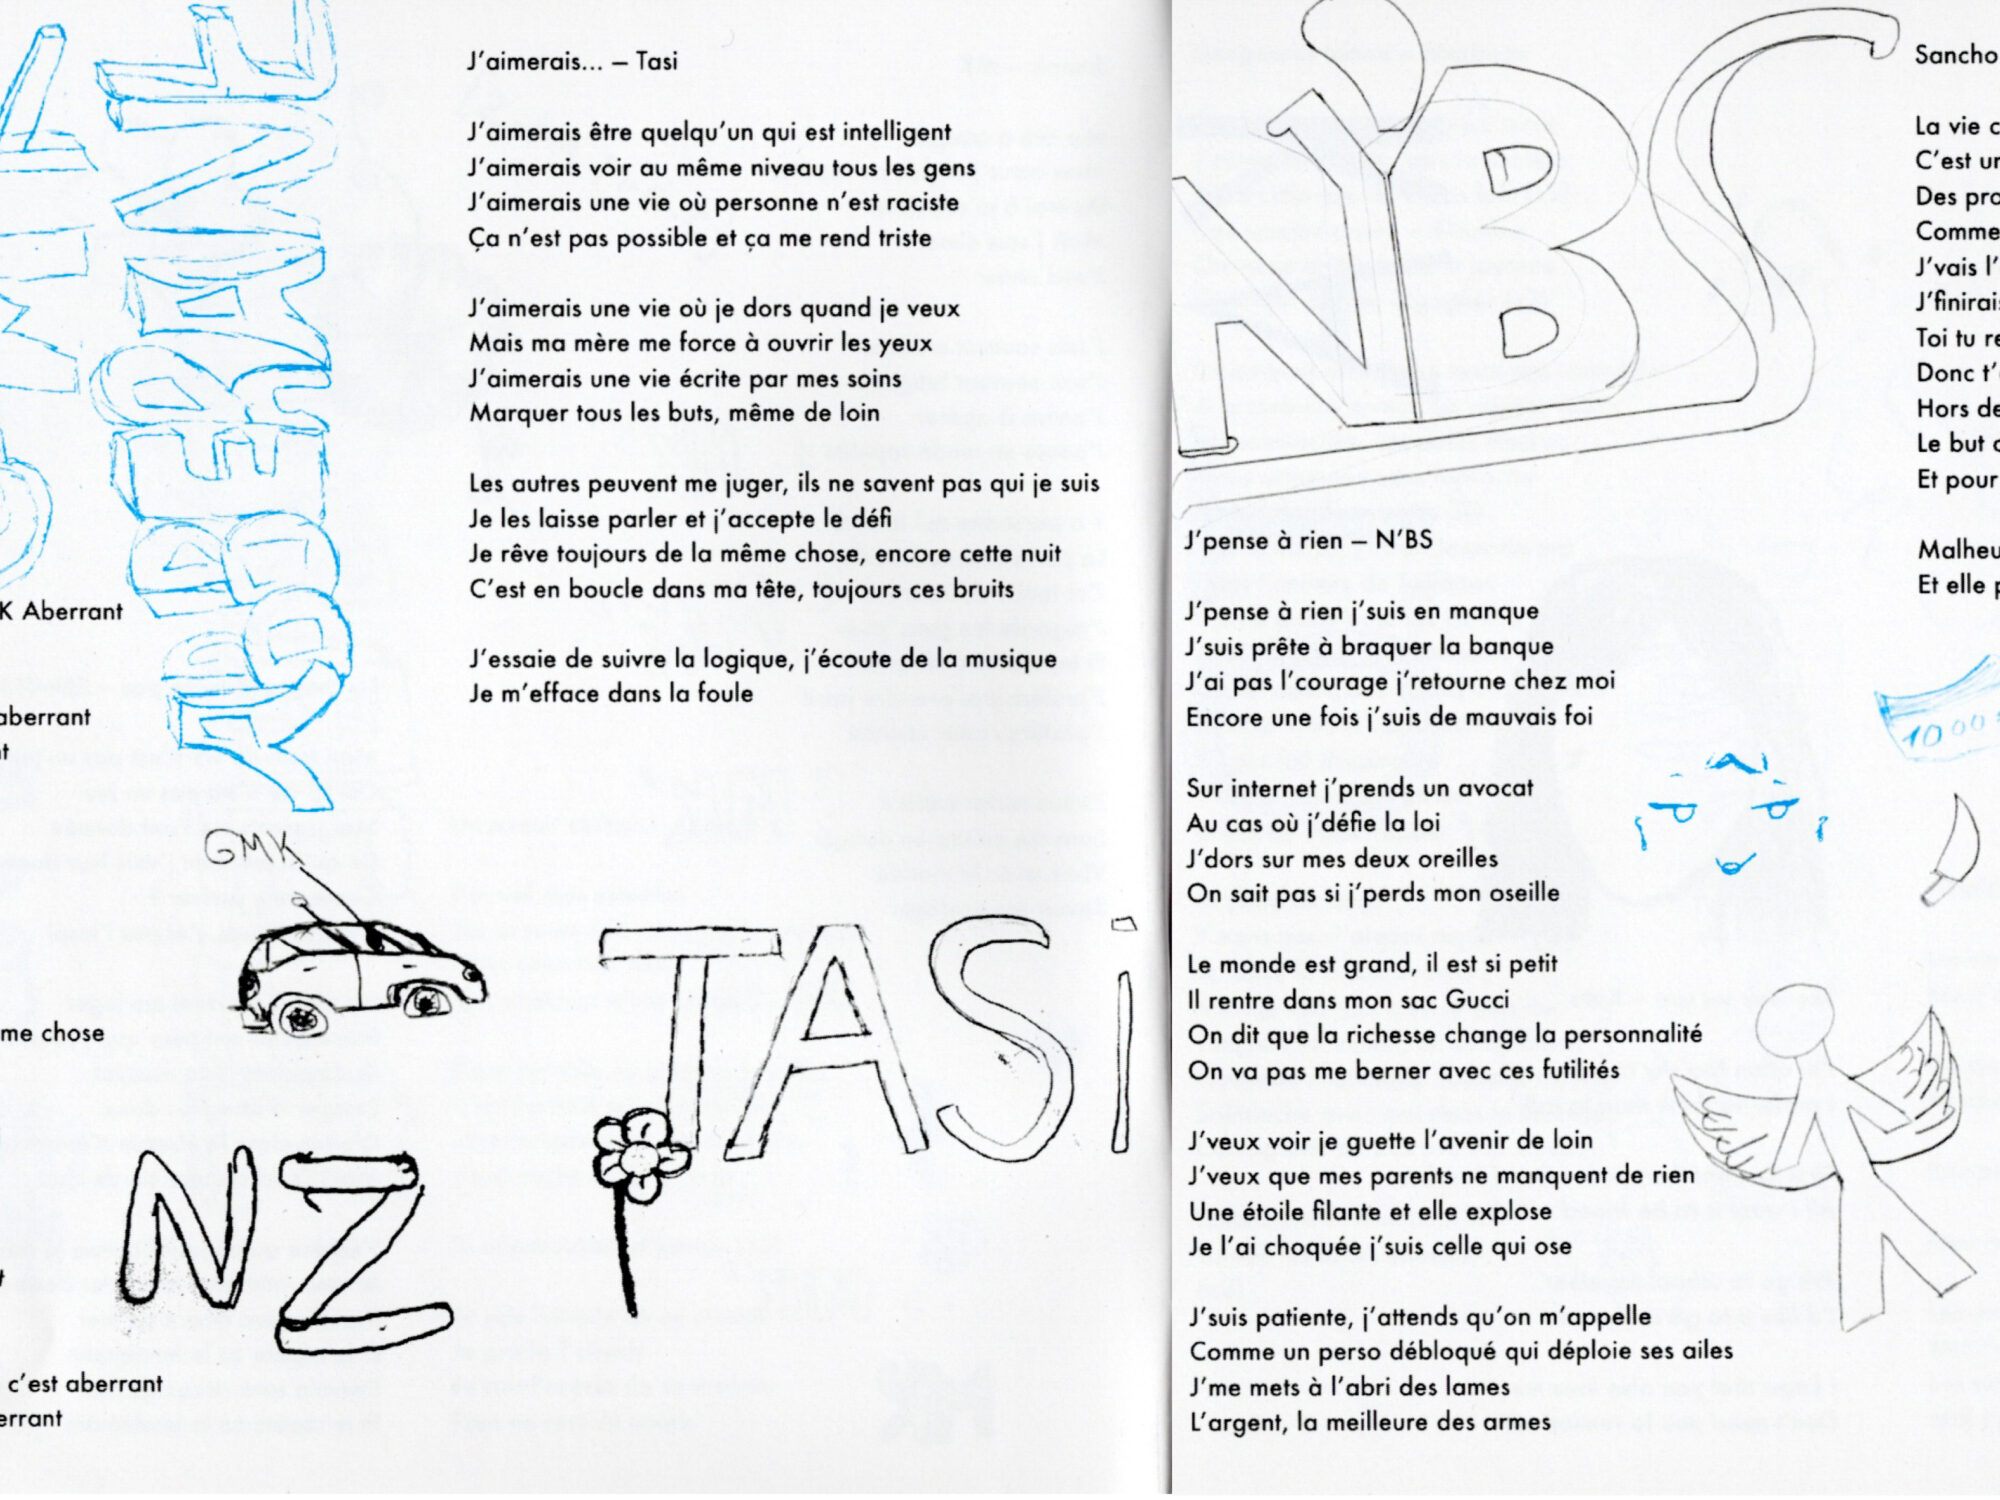 ABERRANT
K Aberrant
aberrant
GMK
me chose
NZ
c'est aberrant
J'aimerais... – Tasi
J'aimerais être quelqu'un qui est intelligent
J'aimerais voir au même niveau tous les gens
J'aimerais une vie où personne n'est raciste
Ça n'est pas possible et ça me rend triste
J'aimerais une vie où je dors quand je veux
Mais ma mère me force à ouvrir les yeux
J'aimerais une vie écrite par mes soins
Marquer tous les buts, même de loin
Les autres peuvent me juger, ils ne savent pas qui je suis
Je les laisse parler et j'accepte le défi
Je rêve toujours de la même chose, encore cette nuit
C'est en boucle dans ma tête, toujours ces bruits
J'essaie de suivre la logique, j'écoute de la musique
Je m'efface dans la foule
TASi
N'BS
J'pense à rien – N'BS
J'pense à rien j'suis en manque
J'suis prête à braquer la banque
J'ai pas l'courage j'retourne chez moi
Encore une fois j'suis de mauvais foi
Sur internet j'prends un avocat
Au cas où j'défie la loi
J'dors sur mes deux oreilles
On sait pas si j'perds mon oseille
Le monde est grand, il est si petit
Il rentre dans mon sac Gucci
On dit que la richesse change la personnalité
On va pas me berner avec ces futilités
J'veux voir je guette l'avenir de loin
J'veux que mes parents ne manquent de rien
Une étoile filante et elle explose
Je l'ai choquée j'suis celle qui ose
J'suis patiente, j'attends qu'on m'appelle
Comme un perso débloqué qui déploie ses ailes
J'me mets à l'abri des lames
L'argent, la meilleure des armes
Sancho
La vie
C'est
Des
Comme
J'vais
J'finirais
Toi tu
Donc
Hors
Le but
Et pour
Et elle
1000